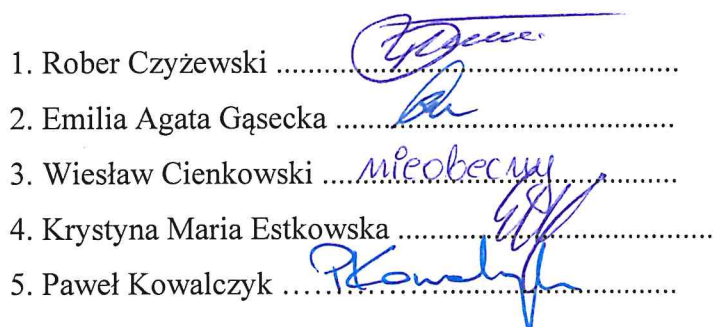 1. Rober Czyżewski ........................................................
2. Emilia Agata Gąsecka ...............................................
3. Wiesław Cienkowski ....nieobecny....................
4. Krystyna Maria Estkowska ...........................................
5. Paweł Kowalczyk ......PKowalczyk...............